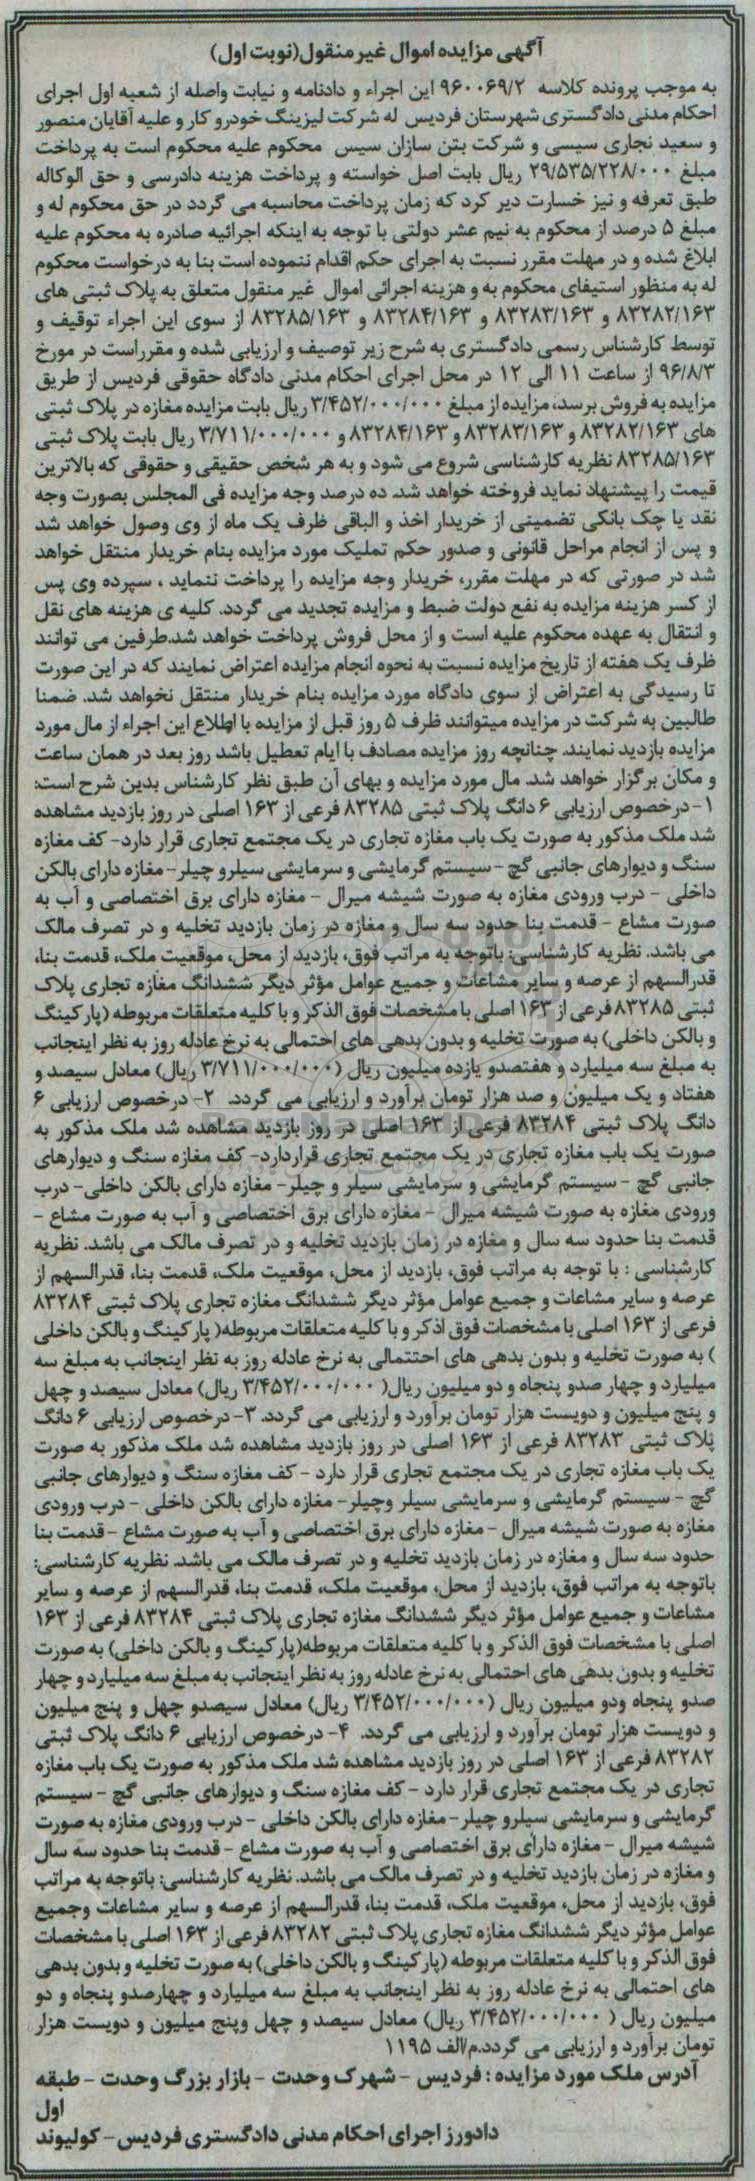 آگهی مزایده اموال غیر منقول(نوبت اول)
به موجب پرونده کلاسه ۹۶۰۰۶۹/۲ این اجراء و دادنامه و نیابت واصله از شعبه اول اجرای
احکام مدنی دادگستری شهرستان فردیس له شرکت لیزینگ خودرو کار و علیه آقایان منصور
و سعید نجاری سیسی و شرکت بتن سازان سیس محکوم علیه محکوم است به پرداخت
مبلغ ۲۹/۵۳۵/۲۲۸/۰۰۰ ریال بابت اصل خواسته و پرداخت هزینه دادرسی و حق الوکاله
طبق تعرفه و نیز خسارت دیر کرد که زمان پرداخت محاسبه می گردد در حق محکوم له و
مبلغ ۵ درصد از محکوم به نیم عشر دولتی با توجه به اینکه اجرائیه صادره به محکوم علیه
ابلاغ شده و در مهلت مقرر نسبت به اجرای حکم اقدام ننموده است بنا به درخواست محکوم
له به منظور استیفای محکوم به و هزینه اجرائی اموال غیر منقول متعلق به پلاک ثبتی های
۸۳۲۸۲/۱۶۳ و ۸۳۲۸۳/۱۶۳ و ۸۳۲۸۴/۱۶۳ و ۸۳۲۸۵/۱۶۳ از سوی این اجراء توقیف و
توسط کارشناس رسمی دادگستری به شرح زیر توصیف و ارزیابی شده و مقرراست در مورخ
۹۶/۸/۳ از ساعت ۱۱ الی ۱۲ در محل اجرای احکام مدنی دادگاه حقوقی فردیس از طریق
مزایده به فروش برسد، مزایده از مبلغ ۳/۴۵۲/۰۰۰/۰۰۰ ریال بابت مزایده مغازه در پلاک ثبتی
های ۸۳۲۸۲/۱۶۳ و ۸۳۲۸۳/۱۶۳ و ۸۳۲۸۴/۱۶۳ و ۳/۷۱۱/۰۰۰/۰۰۰ ریال بابت پلاک ثبتی
۸۳۲۸۵/۱۶۳ نظریه کارشناسی شروع می شود و به هر شخص حقیقی و حقوقی که بالاترین
قیمت را پیشنهاد نماید فروخته خواهد شد. ده درصد وجه مزایده فی المجلس بصورت وجه
نقد یا چک بانکی تضمینی از خریدار اخذ و الباقی ظرف یک ماه از وی وصول خواهد شد
و پس از انجام مراحل قانونی و صدور حکم تملیک مورد مزایده بنام خریدار منتقل خواهد
شد در صورتی که در مهلت مقرر، خریدار وجه مزایده را پرداخت ننماید ، سپرده وی پس
از کسر هزینه مزایده به نفع دولت ضبط و مزایده تجدید می گردد. کلیه ی هزینه های نقل
و انتقال به عهده محکوم علیه است و از محل فروش پرداخت خواهد شد.طرفین می توانند
ظرف یک هفته از تاریخ مزایده نسبت به نحوه انجام مزایده اعتراض نمایند که در این صورت
تا رسیدگی به اعتراض از سوی دادگاه مورد مزایده بنام خریدار منتقل نخواهد شد. ضمنا
طالبین به شرکت در مزایده میتوانند ظرف ۵ روز قبل از مزایده با اطلاع این اجراء از مال مورد
مزایده بازدید نمایند. چنانچه روز مزایده مصادف با ایام تعطیل باشد روز بعد در همان ساعت
و مکان برگزار خواهد شد. مال مورد مزایده و بهای آن طبق نظر کارشناس بدین شرح است:
۱- درخصوص ارزیابی ۶ دانگ پلاک ثبتی ۸۳۲۸۵ فرعی از ۱۶۳ اصلی در روز بازدید مشاهده
شد ملک مذکور به صورت یک باب مغازه تجاری در یک مجتمع تجاری قرار دارد- کف مغازه
سنگ و دیوارهای جانبی گچ - سیستم گرمایشی و سرمایشی سیلرو چیلر- مغازه دارای بالکن
داخلی - درب ورودی مغازه به صورت شیشه میرال - مغازه دارای برق اختصاصی و آب به
صورت مشاع - قدمت بنا حدود سه سال و مغازه در زمان بازدید تخلیه و در تصرف مالک
می باشد. نظریه کارشناسی: باتوجه به مراتب فوق، بازدید از محل، موقعیت ملک، قدمت بنا،
قدرالسهم از عرصه و سایر مشاعات و جمیع عوامل مؤثر دیگر ششدانگ مغازه تجاری پلاک
ثبتی ۸۳۲۸۵ فرعی از ۱۶۳ اصلی با مشخصات فوق الذکر و با کلیه متعلقات مربوطه (پارکینگ
و بالکن داخلی) به صورت تخلیه و بدون بدهی های احتمالی به نرخ عادله روز به نظر اینجانب
به مبلغ سه میلیارد و هفتصدو یازده میلیون ریال (۳/۷۱۱/۰۰۰/۰۰۰ ریال) معادل سیصد و
هفتاد و یک میلیون و صد هزار تومان برآورد و ارزیابی می گردد. ۲- درخصوص ارزیابی ۶
دانگ پلاک ثبتی ۸۳۲۸۴ فرعی از ۱۶۳ اصلی در روز بازدید مشاهده شد ملک مذکور به
صورت یک باب مغازه تجاری در یک مجتمع تجاری قراردارد- کف مغازه سنگ و دیوارهای
جانبی گچ - سیستم گرمایشی و سرمایشی سیلر و چیلر- مغازه دارای بالکن داخلی- درب
ورودی مغازه به صورت شیشه میرال - مغازه دارای برق اختصاصی و آب به صورت مشاع -
قدمت بنا حدود سه سال و مغازه در زمان بازدید تخلیه و در تصرف مالک می باشد. نظریه
کارشناسی : با توجه به مراتب فوق، بازدید از محل، موقعیت ملک، قدمت بنا، قدرالسهم از
عرصه و سایر مشاعات و جمیع عوامل مؤثر دیگر ششدانگ مغازه تجاری پلاک ثبتی ۸۳۲۸۴
فرعی از ۱۶۳ اصلی با مشخصات فوق اذکر و با کلیه متعلقات مربوطه( پارکینگ و بالکن داخلی
) به صورت تخلیه و بدون بدهی های احتتمالی به نرخ عادله روز به نظر اینجانب به مبلغ سه
میلیارد و چهار صدو پنجاه و دو میلیون ریال( ۳/۴۵۲/۰۰۰/۰۰۰ ریال) معادل سیصد و چهل
و پنج میلیون و دویست هزار تومان برآورد و ارزیابی می گردد. ۳- درخصوص ارزیابی ۶ دانگ
پلاک ثبتی ۸۳۲۸۳ فرعی از ۱۶۳ اصلی در روز بازدید مشاهده شد ملک مذکور به صورت
یک باب مغازه تجاری در یک مجتمع تجاری قرار دارد - کف مغازه سنگ و دیوارهای جانبی
گچ - سیستم گرمایشی و سرمایشی سیلر وچیلر- مغازه دارای بالکن داخلی - درب ورودی
مغازه به صورت شیشه میرال - مغازه دارای برق اختصاصی و آب به صورت مشاع - قدمت بنا
حدود سه سال و مغازه در زمان بازدید تخلیه و در تصرف مالک می باشد. نظریه کارشناسی:
باتوجه به مراتب فوق، بازدید از محل، موقعیت ملک، قدمت بنا، قدرالسهم از عرصه و سایر
مشاعات و جمیع عوامل مؤثر دیگر ششدانگ مغازه تجاری پلاک ثبتی ۸۳۲۸۴ فرعی از ۱۶۳
اصلی با مشخصات فوق الذکر و با کلیه متعلقات مربوطه(پارکینگ و بالکن داخلی) به صورت
تخلیه و بدون بدهی های احتمالی به نرخ عادله روز به نظر اینجانب به مبلغ سه میلیارد و چهار
صدو پنجاه ودو میلیون ریال (۳/۴۵۲/۰۰۰/۰۰۰ ریال) معادل سیصدو چهل و پنج میلیون
و دویست هزار تومان برآورد و ارزیابی می گردد. ۴- درخصوص ارزیابی ۶ دانگ پلاک ثبتی
۸۳۲۸۲ فرعی از ۱۶۳ اصلی در روز بازدید مشاهده شد ملک مذکور به صورت یک باب مغازه
تجاری در یک مجتمع تجاری قرار دارد - کف مغازه سنگ و دیوارهای جانبی گچ - سیستم
گرمایشی و سرمایشی سیلرو چیلر- مغازه دارای بالکن داخلی - درب ورودی مغازه به صورت
شیشه میرال - مغازه دارای برق اختصاصی و آب به صورت مشاع - قدمت بنا حدود سه سال
و مغازه در زمان بازدید تخلیه و در تصرف مالک می باشد. نظریه کارشناسی: باتوجه به مراتب
فوق، بازدید از محل، موقعیت ملک، قدمت بنا، قدرالسهم از عرصه و سایر مشاعات وجمیع
عوامل مؤثر دیگر ششدانگ مغازه تجاری پلاک ثبتی ۸۳۲۸۲ فرعی از ۱۶۳ اصلی با مشخصات
فوق الذکر و با کلیه متعلقات مربوطه (پارکینگ و بالکن داخلی) به صورت تخلیه و بدون بدهی
های احتمالی به نرخ عادله روز به نظر اینجانب به مبلغ سه میلیارد و چهارصدو پنجاه و دو
میلیون ریال ( ۳/۴۵۲/۰۰۰/۰۰۰ ریال) معادل سیصد و چهل وپنج میلیون و دویست هزار
تومان برآورد و ارزیابی می گردد.م/الف ۱۱۹۵
آدرس ملک مورد مزایده : فردیس - شهرک وحدت - بازار بزرگ وحدت - طبقه
اول
دادورز اجرای احکام مدنی دادگستری فردیس- کولیوند